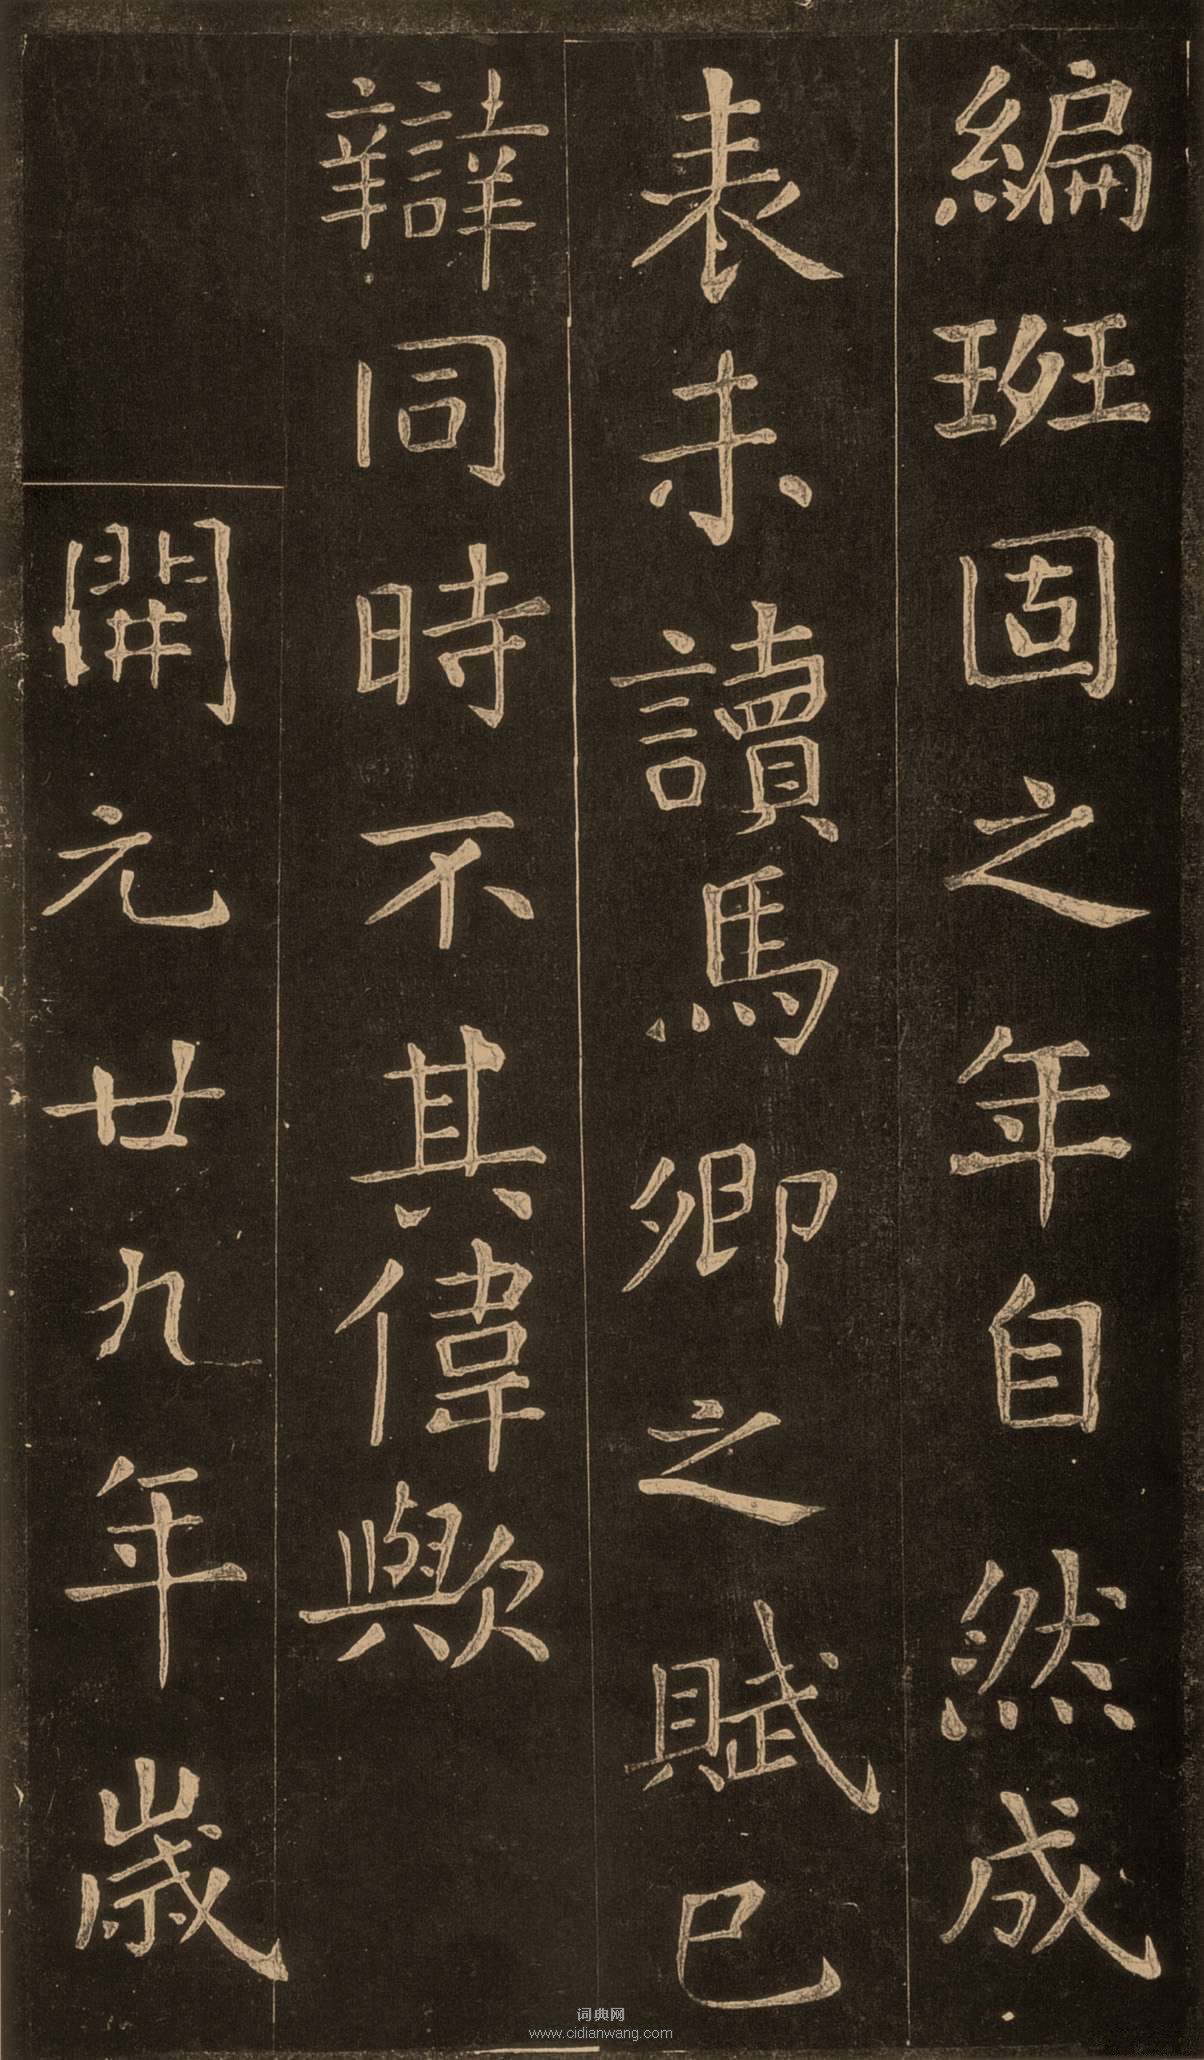 編班固之年自然成
表未讀馬卿之賦已
辯同時不其偉歟
開元廿九年歲
词典网
www.cidianwang.com